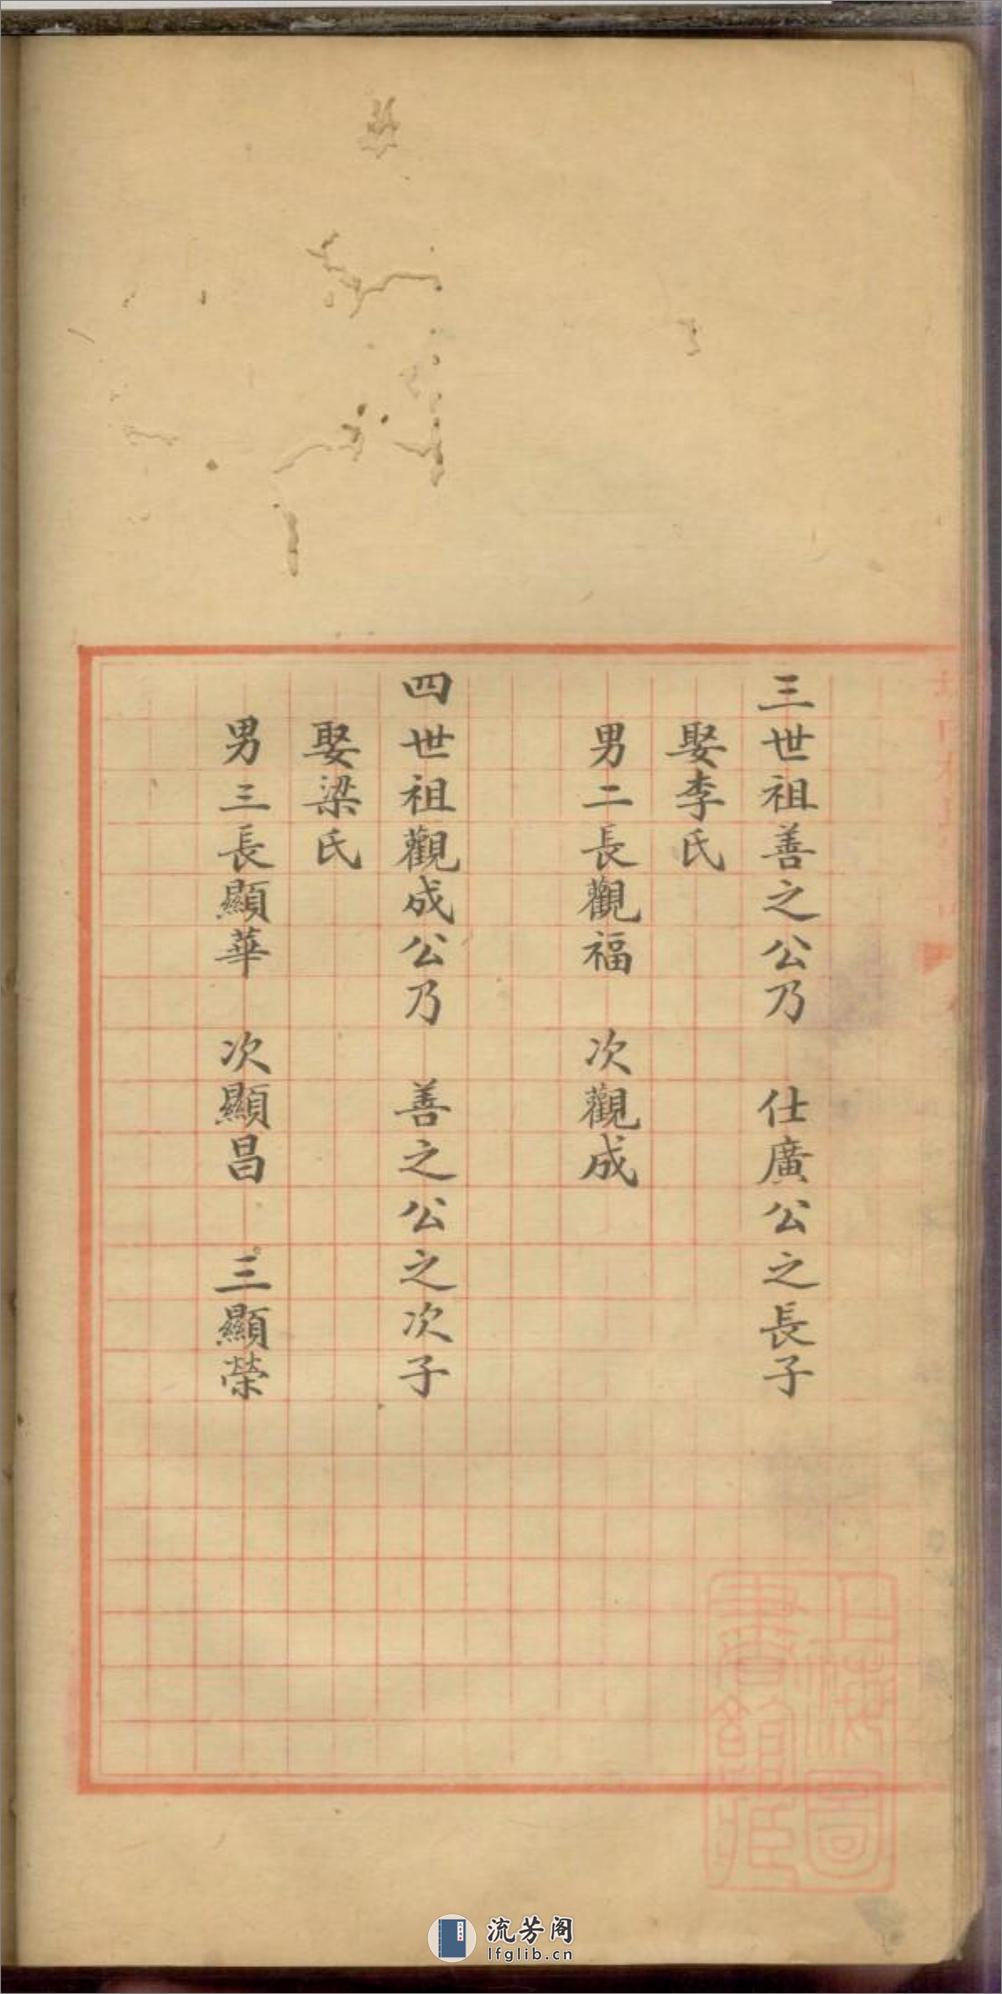 三世祖善之公乃　仕廣公之長子
娶李氏
男二長觀福　次觀成
四世祖觀成公乃　善之公之次子
娶梁氏
男三長顯華　次顯昌　三顯榮
上海圖
書館藏
流芳阁
lfglib.cn